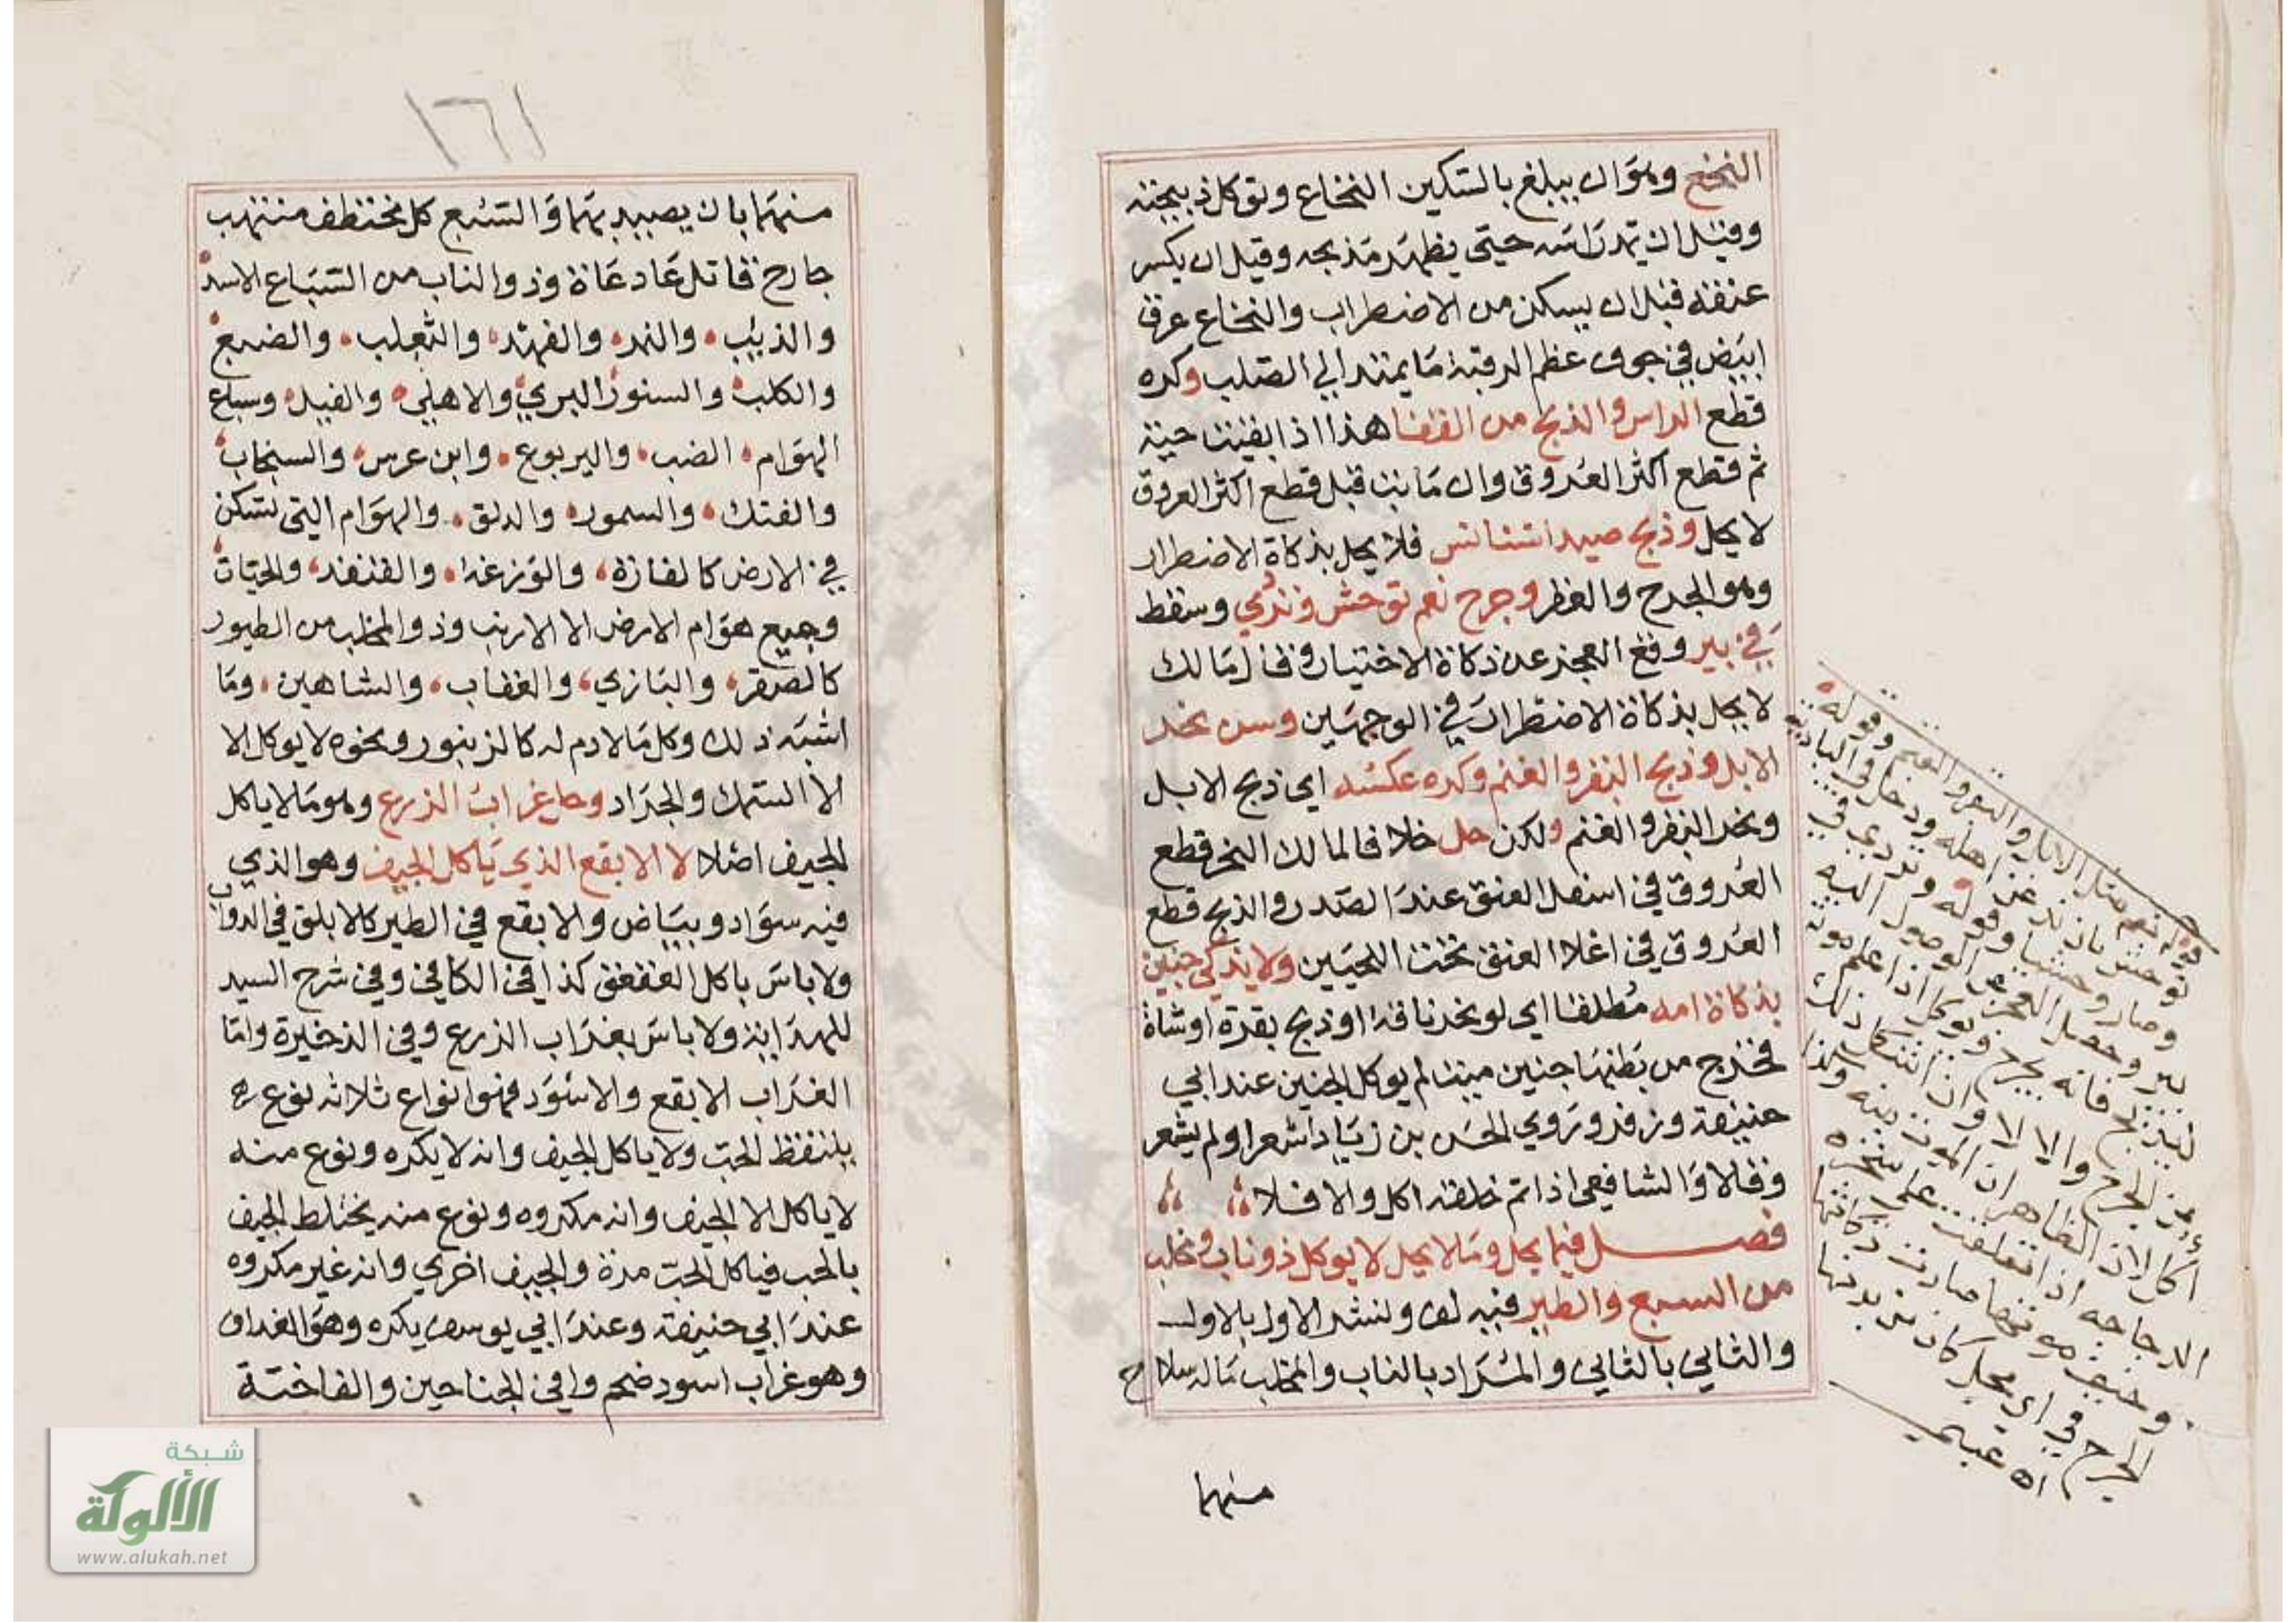 النخع وهو ان يبلغ بالسكين النخاع وتوكل ذبيحته
وقيل ان يمد راسه حتى يظهر مذبحه وقيل ان يكسر
عنقه قبل ان يسكن من الاضطراب والنخاع عرق
ابيض في جوف عظم الرقبة ما يمتد الي الصلب وكره
قطع الراس والذبح من القفا هذا اذا بقيت حية
ثم قطع اكثر العروق وان ماتت قبل قطع اكثر العروق
لا يحل وذبح صيد استانس فلا يحل بذكاة الاضطرار
وهو الجرح والعقر وجرح نعم توحش وتردي وسقط
في بير وقع العجز عن ذكاة الاختيار وقال مالك
لا يحل بذكاة الاضطرار في الوجهين وسن نحر
الابل وذبح البقر والغنم وكره عكسه اي ذبح الابل
ونحر البقر والغنم ولكن حل خلافا لمالك النحر قطع
العروق في اسفل العنق عند الصدر والذبح قطع
العروق في اعلا العنق تحت اللحيين ولا يذكي جنين
بذكاة امه مطلقا اي لو نحر ناقة او ذبح بقرة او شاة
فخرج من بطنها جنين ميت لم يوكل الجنين عند ابي
حنيفة وزفر وروي الحسن بن زياد اشعر او لم يشعر
وقالا والشافعي اذا تم خلقه اكل والا فلا
فصل فيما يحل وما لا يحل لا يوكل ذو ناب ومخلب
من السبع والطير فيه لف ونشر الاول بالاول
والثاني بالثاني والمراد بالناب والمخلب ماله سلاح
منهما
قوله نعم مثل الابل والبقر والغنم وقوله
توحش بان ند عن اهله ودخل في البادية
وصار وحشيا وقوله وتردي في
بير وحصل العجز عن الوصول اليه
ليذبح فانه يجرح ويوكل اذا علم موته
من الجرح والا لا وان اشكل ذلك
اكل لان الظاهر ان الموت منه وكذا
الدجاجه اذا تعلقت علي شجره
وخيف موتها صارت ذكاتها
الجرح في اي محل كان من بدنها
اه
١٦١
منهما بان يصيد بهما والسبع كل مختطف منتهب
جارح قاتل عاد عادة وذو الناب من السباع الاسد
والذيب والنمر والفهد والثعلب والضبع
والكلب والسنور البري والاهلي والفيل وسباع
الهوام الضب واليربوع وابن عرس والسنجاب
والفنك والسمور والدلق والهوام التي تسكن
في الارض كالفارة والوزغة والقنفد والحيات
وجميع هوام الارض الا الارنب وذو المخلب من الطيور
كالصقر والبازي والعقاب والشاهين وما
اشبه ذلك وكل مالا دم له كالزنبور ونحوه لا يوكل الا
الا السمك والجراد وحل غراب الزرع وهو ما لا ياكل
الجيف اصلا لا الابقع الذي ياكل الجيف وهو الذي
فيه سواد وبياض والابقع في الطير كالابلق في الدواب
ولا باس باكل العقعق كذا في الكافي وفي شرح السيد
للهداية ولا باس بغراب الزرع وفي الذخيرة واما
الغراب الابقع والاسود فهو انواع ثلاثه نوع
يلتقط الحب ولا ياكل الجيف وانه لا يكره ونوع منه
لا ياكل الا الجيف وانه مكروه ونوع منه يختلط الجيف
بالحب فياكل الحب مرة والجيف اخري وانه غير مكروه
عند ابي حنيفة وعند ابي يوسف يكره وهو الغداف
وهو غراب اسود ضخم وافي الجناحين والفاختة
شبكة
الألوكة
www.alukah.net